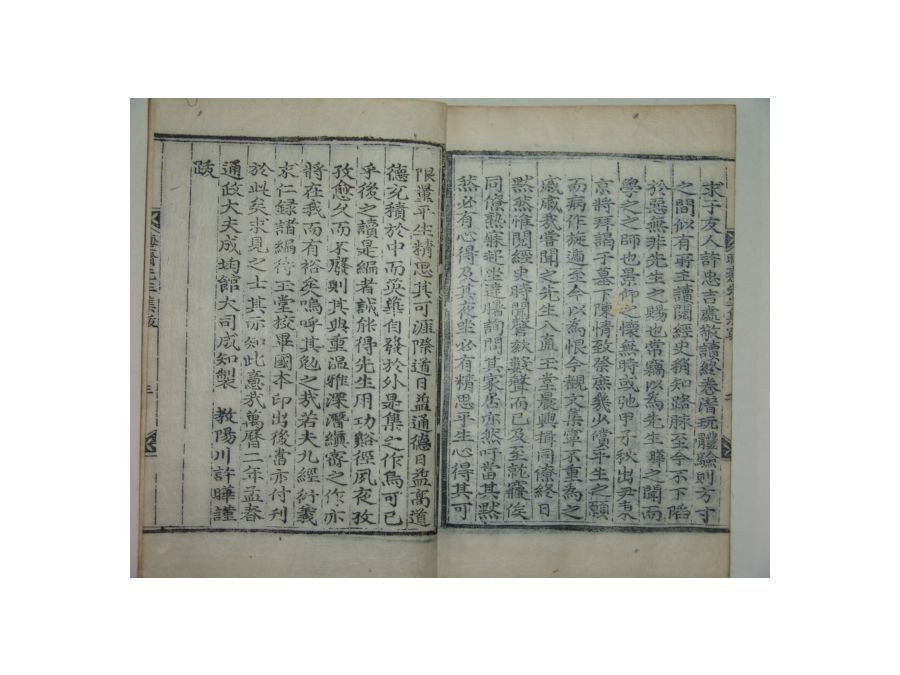 求于友人許忠吉處敬讀終卷潛玩體驗則方寸
之間似有所主讀閱經史稍知路脉至今不下陷
於惡無非先生之賜也常竊以爲先生曄之聞而
學之之師也景仰之懷無時或弛甲子秋出尹東
京將拜謁于墓下陳情致祭庶幾少償平生之願
而病作旋遞至今以爲恨今觀文集寧不重爲之
慼慼哉嘗聞之先生入直玉堂晨興揖同僚終日
默然惟閱經史時聞謦欬聲而已及至就寢俟
同僚熟寐起坐達曙詢問其家居亦然吁當其默
然必有心得及其夜坐必有精思平生心得其可
限量平生精思其可涯際道日益通德日益高道
德充積於中而英華自發於外是集之作烏可已
乎後之讀是編者誠能得先生用功谿徑夙夜孜
孜愈久而不廢則其典重溫雅深潛縝密之作亦
將在我而有裕矣嗚呼其勉之哉若夫九經衍義
求仁錄諸編待玉堂校畢國本印出後當亦付刊
於此矣求見之士其亦知此意哉萬曆二年孟春
通政大夫成均館大司成知製 教陽川許曄謹
跋